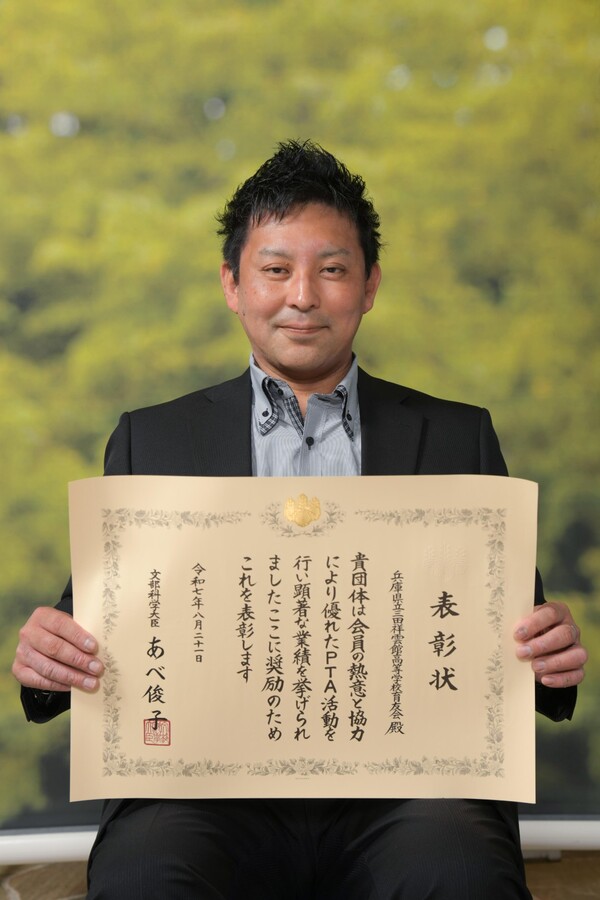 表彰状
兵庫県立三田祥雲館高等学校育友会 殿
貴団体は会員の熱意と協力
により優れたPTA活動を
行い顕著な業績を挙げられ
ましたここに奨励のため
これを表彰します
令和七年八月二十一日
文部科学大臣 あべ俊子